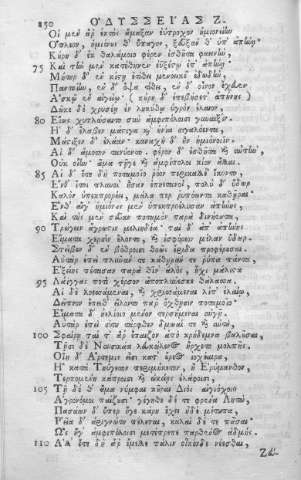 150 ὈΔΥΣΣΕΊΑΣ Ζ.
Οἱ μὲν ἄρ᾽ ἐκτὸς ἄμαξαν ἐΰτροχον ἡμιονείην
Ὥπλεον, ἡμιόνους θ᾽ ὕπαγον, ζεῦξάν θ᾽ ὑπ᾽ ἀπήνῃ·
Κούρη δ᾽ ἐκ θαλάμοιο φέρεν ἐσθῆτα φαεινήν,
75 Καὶ τὴν μὲν κατέθηκεν ἐϋξέστῳ ἐπ᾽ ἀπήνῃ·
Μήτηρ δ᾽ ἐν κίστῃ ἐτίθει μενοεικέ᾽ ἐδωδὴν
Παντοίην, ἐν δ᾽ ὄψα τίθει, ἐν δ᾽ οἶνον ἔχευεν
Ἀσκῷ ἐν αἰγείῳ· (κούρη δ᾽ ἐπεβήσετ᾽ ἀπήνης)
Δῶκε δὲ χρυσέῃ ἐν ληκύθῳ ὑγρὸν ἔλαιον,
80 Εἵως χυτλώσαιτο σὺν ἀμφιπόλοισι γυναιξίν.
Ἡ δ᾽ ἔλαβεν μάστιγα καὶ ἡνία σιγαλόεντα,
Μάστιξεν δ᾽ ἐλάαν· καναχὴ δ᾽ ἦν ἡμιόνοιϊν·
Αἱ δ᾽ ἄμοτον τανύοντο· φέρον δ᾽ ἐσθῆτα καὶ αὐτὴν,
Οὐκ οἴην· ἅμα τῇγε καὶ ἀμφίπολοι κίον ἄλλαι.
85 Αἱ δ᾽ ὅτε δὴ ποταμοῖο ῥόον περικαλλέ᾽ ἵκοντο,
Ἔνθ᾽ ἤτοι πλυνοὶ ἦσαν ἐπηετανοί, πολὺ δ᾽ ὕδωρ
Καλὸν ὑπεκπρορέει, μάλα περ ῥυπόωντα καθῆραι·
Ἔνθ᾽ αἵγ᾽ ἡμιόνους μὲν ὑπεκπροέλυσαν ἀπήνης,
Καὶ τὰς μὲν σεῦαν ποταμὸν παρὰ δινήεντα,
90 Τρώγειν ἄγρωστιν μελιηδέα· ταὶ δ᾽ ἀπ᾽ ἀπήνης
Εἵματα χερσὶν ἕλοντο, καὶ ἐσφόρεον μέλαν ὕδωρ·
Στεῖβον δ᾽ ἐν βόθροισι θοῶς ἔριδα προφέρουσαι·
Αὐτὰρ ἐπεὶ πλῦνάν τε κάθηράν τε ῥύπα πάντα,
Ἑξείης πέτασαν παρὰ θῖν᾽ ἁλὸς, ᾗχι μάλιστα
95 Λάϊγγας ποτὶ χέρσον ἀποπλύνεσκε θάλασσα.
Αἱ δὲ λοεσσάμεναι, καὶ χρισάμεναι λίπ᾽ ἐλαίῳ,
Δεῖπνον ἔπειθ᾽ εἵλοντο παρ᾽ ὄχθῃσιν ποταμοῖο·
Εἵματα δ᾽ ἠελίοιο μένον τερσήμεναι αὐγῇ.
Αὐτὰρ ἐπεὶ σίτου τάρφθεν δμωαί τε καὶ αὐτή,
100 Σφαίρῃ ταὶ τ᾽ ἄρ᾽ ἔπαιζον ἀπὸ κρήδεμνα βαλοῦσαι,
Τῇσι δὲ Ναυσικάα λευκώλενος ἤρχετο μολπῆς.
Οἵη δ᾽ Ἄρτεμις εἶσι κατ᾽ οὔρεος ἰοχέαιρα,
Ἢ κατὰ Τηΰγετον περιμήκετον, ἢ Ἐρύμανθον,
Τερπομένη κάπροισι καὶ ὠκείῃς ἐλάφοισι,
105 Τῇ δέ θ᾽ ἅμα νύμφαι κοῦραι Διὸς αἰγιόχοιο
Ἀγρονόμοι παίζουσι· γέγηθε δέ τε φρένα Λητώ,
Πασάων δ᾽ ὑπὲρ ἥγε κάρη ἔχει ἠδὲ μέτωπα,
Ῥεῖα δ᾽ ἀριγνώτη πέλεται, καλαὶ δέ τε πᾶσαι·
Ὣς ἥγ᾽ ἀμφιπόλοισι μετέπρεπε παρθένος ἀδμής.
110 Ἀλλ᾽ ὅτε δὴ ἄρ᾽ ἔμελλε πάλιν οἶκόνδε νέεσθαι,
Ζεύ-